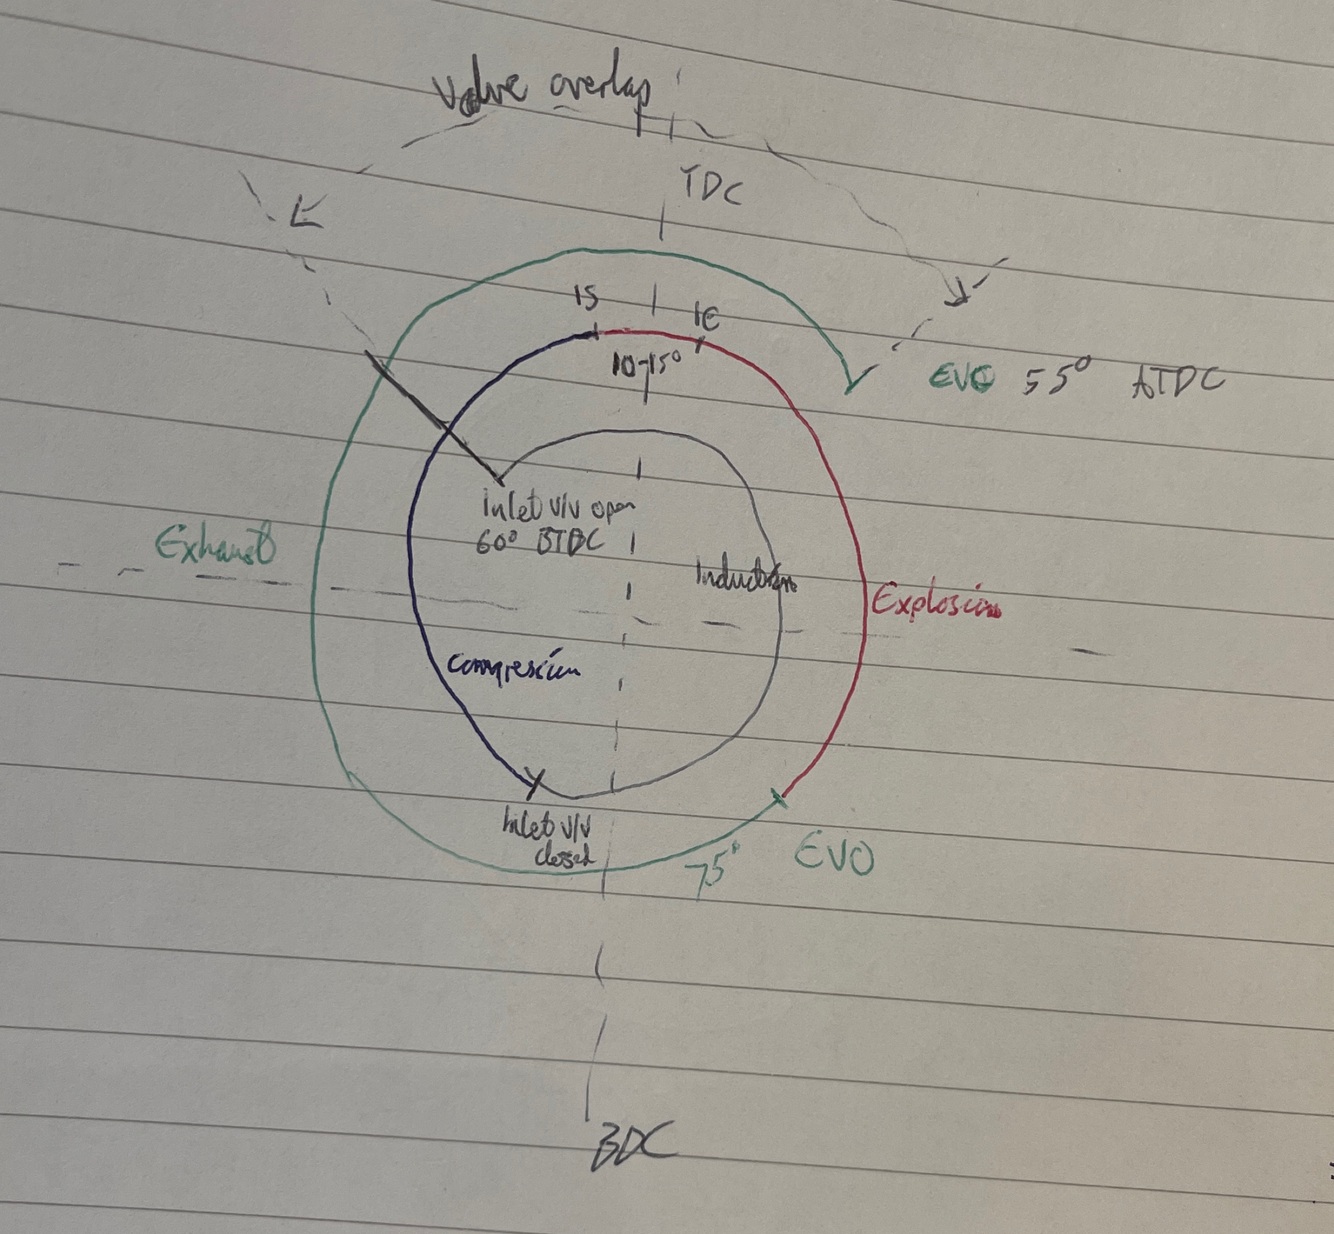 Valve overlap
TDC
IS
IE
10-15°
EVC 55° ATDC
inlet v/v open
60° BTDC
Exhaust
Induction
Explosion
Compression
Inlet v/v
closed
75°
EVO
BDC